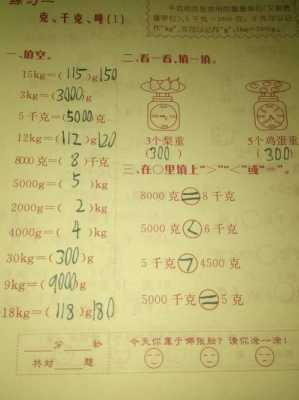 克、千克、吨(1)
一、填空。
15kg=(115)g150
3kg=(3000)g
5千克=(5000)克
12kg=(112)g120
8000克=(8)千克
5000g=(5)kg
2000g=(2)kg
4000g=(4)kg
30kg=(300)g
9kg=(9000)g
18kg=(118)g180
二、看一看,填一填。
3个梨重
(300)
5个鸡蛋重
(300)
三、在○里填上">""<"或"="。
8000克=8千克
5000克<6千克
5千克>4500克
5000千克=5克
分
共对 题
今天你属于哪张脸?请你涂一涂!